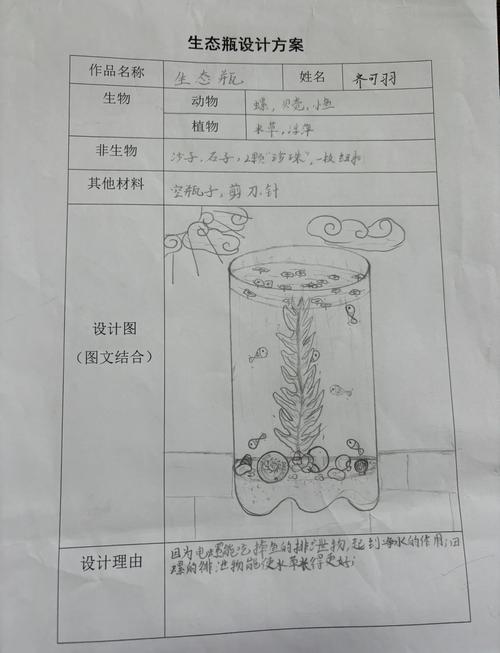 生态瓶设计方案
作品名称 生态瓶 姓名 齐可羽
生物 动物 螺,贝壳,小鱼
植物 水草,浮萍
非生物 沙子,石子,2颗"珍珠",一枚
其他材料 空瓶子,剪刀,针
设计图
(图文结合)
设计理由 因为田螺能吃掉鱼的排泄物,起到净水的作用,田
螺的排泄物能使水草长得更好;